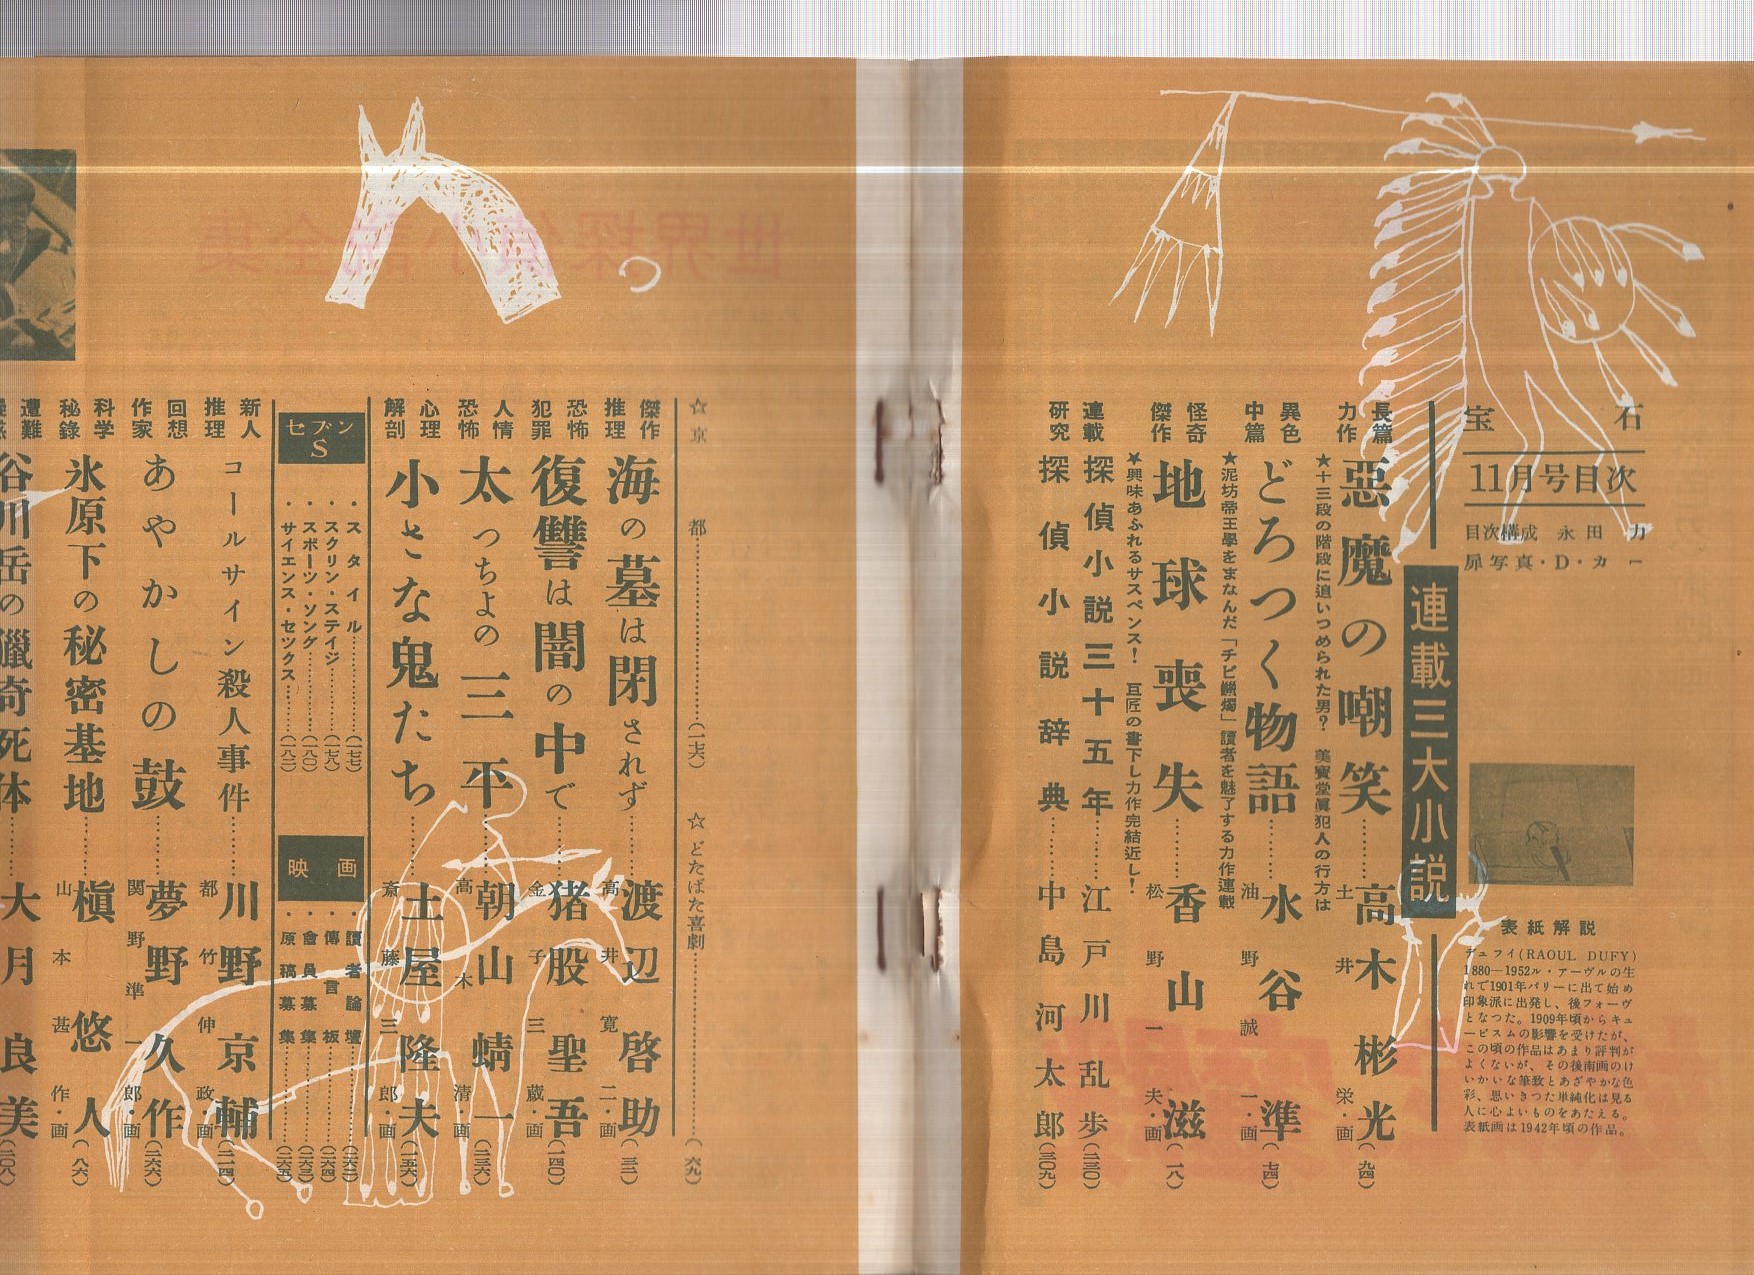 宝石
11月号目次
目次構成 永田力
扉写真・D・カー
表紙解説
デュフイ(RAOUL DUFY)
1880―1952ル・アーヴルの生
れで1901年パリーに出て始め
印象派に出発し、後フォーヴ
となつた。1909年頃からキュ
ービスムの影響を受けたが、
この頃の作品はあまり評判が
よくないが、その後南画のけ
いかいな筆致とあざやかな色
彩、思いきつた単純化は見る
人に心よいものをあたえる。
表紙画は1942年頃の作品。
連載三大小説
長篇力作 惡魔の嘲笑……高木彬光(九四)
土井栄・画
★十三段の階段に追いつめられた男? 美寳堂眞犯人の行方は
異色中篇 どろつく物語……水谷準(七四)
油野誠一・画
★泥坊帝王學をまなんだ「チビ蠟燭」讀者を魅了する力作連載
怪奇傑作 地球喪失……香山滋(一八)
松野一夫・画
★興味あふれるサスペンス! 巨匠の書下し力作完結近し!
連載 探偵小説三十五年……江戸川乱歩(二三〇)
研究 探偵小説辞典……中島河太郎(三〇九)
☆京都……(一七六)
☆どたばた喜劇……(六九)
傑作推理 海の墓は閉されず……渡辺啓助(三二)
高井寛二・画
恐怖犯罪 復讐は闇の中で……猪股聖吾(一四〇)
金子三蔵・画
人情恐怖 太っちよの三平……朝山蜻一(二三六)
高木清・画
心理解剖 小さな鬼たち……土屋隆夫(一五六)
斎藤三郎・画
セブンS
・スタイル……(一七七)
・スクリン・ステイジ……(一七九)
・スポーツ・ソング……(一八〇)
・サイエンス・セツクス……(一八二)
映画
・讀者論壇……(二六二)
・傳言板……(二六四)
・會員募集……(二六三)
・原稿募集……(二六五)
新人推理 コールサイン殺人事件……川野京輔(二一四)
都竹伸政・画
回想作家 あやかしの鼓……夢野久作(二六六)
関野準一郎・画
科学秘錄 氷原下の秘密基地……槇悠人(八六)
山本甚作・画
遭難 谷川岳の獵奇死体……大月良美(二〇八)